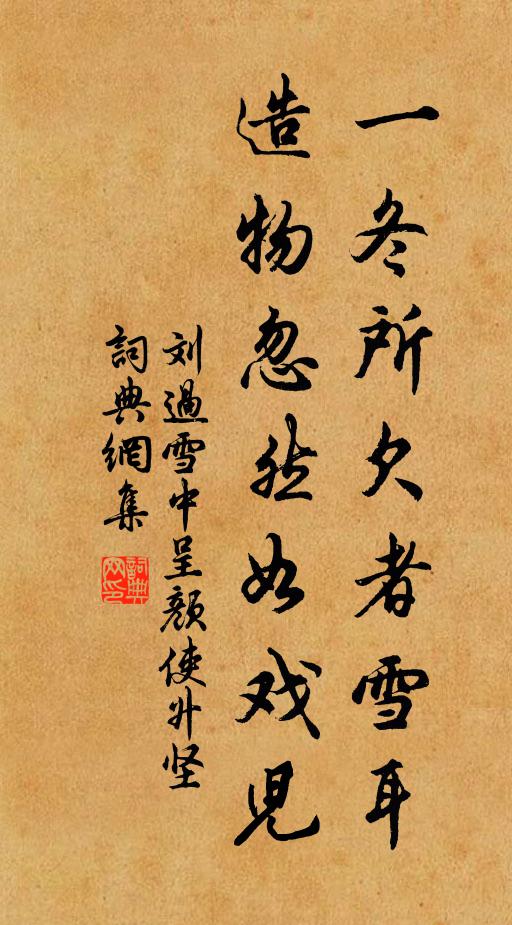 一冬所欠者雪耳
造物忽然如戏兒
刘過雪中呈顏使升坚
詞典網集
詞典网印